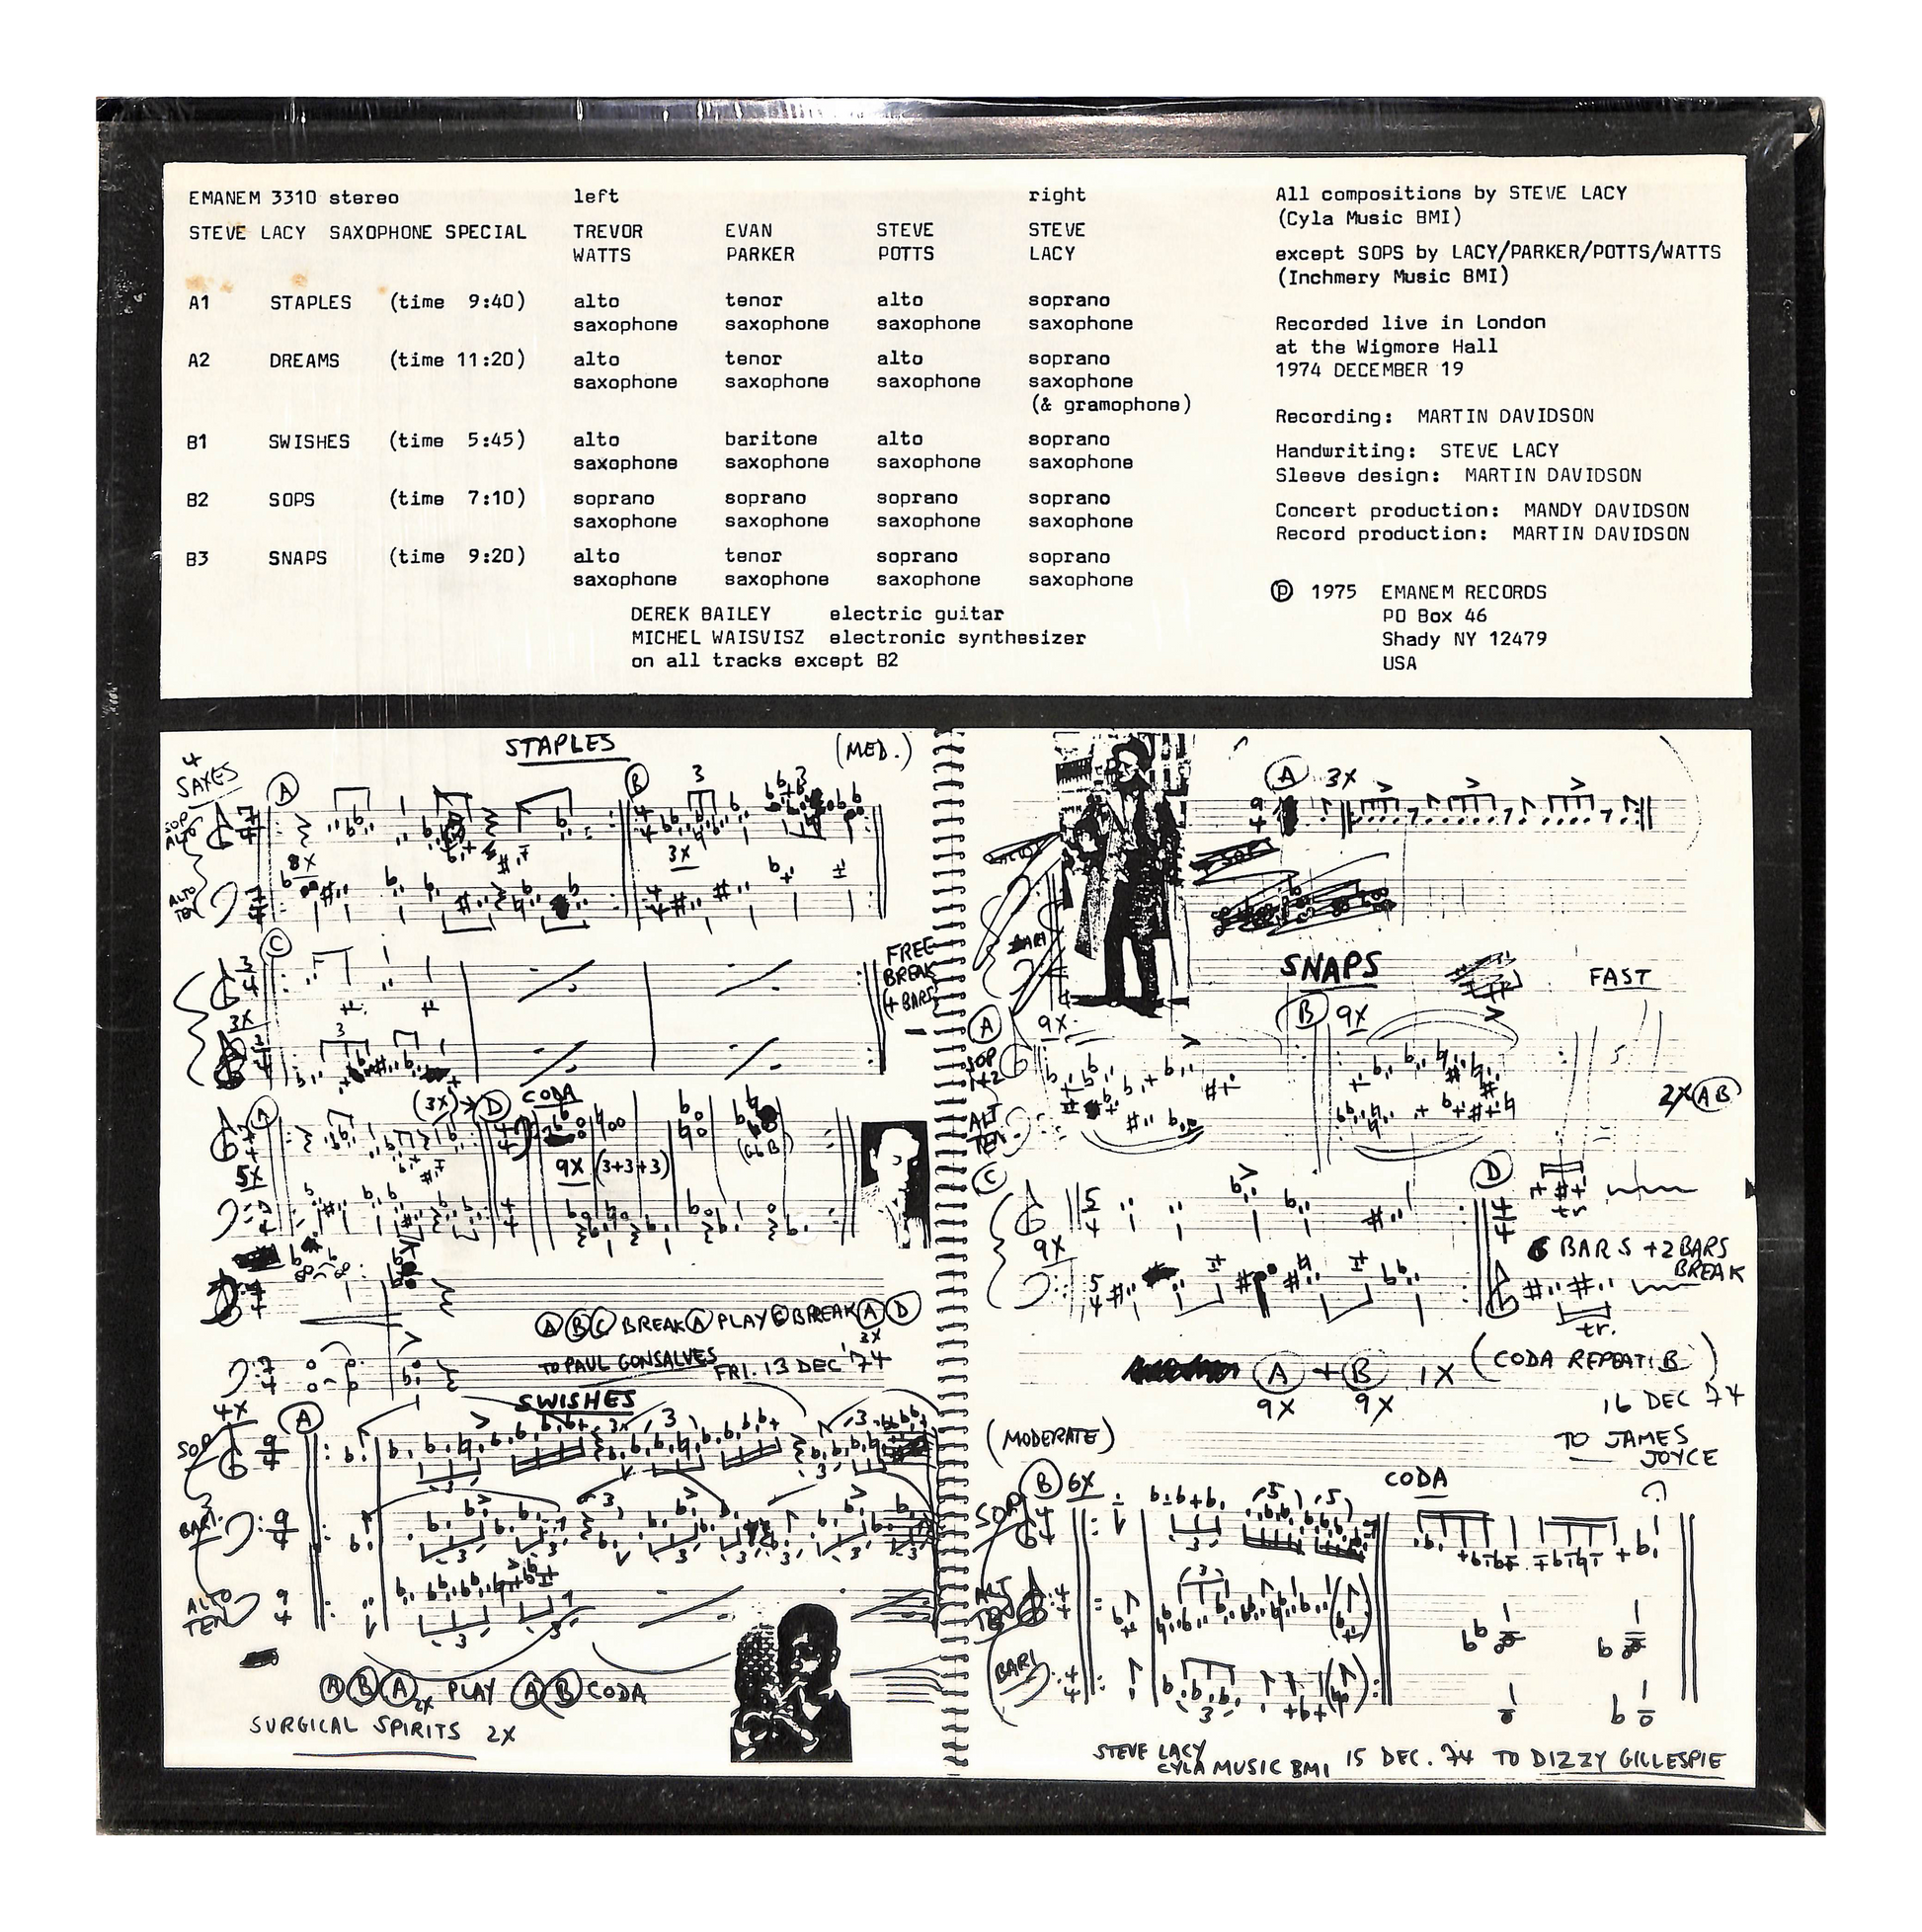 EMANEM 3310 stereo
STEVE LACY SAXOPHONE SPECIAL
left right
TREVOR WATTS EVAN PARKER STEVE POTTS STEVE LACY
A1 STAPLES (time 9:40) alto tenor alto soprano
saxophone saxophone saxophone saxophone
A2 DREAMS (time 11:20) alto tenor alto soprano
saxophone saxophone saxophone saxophone
(& gramophone)
B1 SWISHES (time 5:45) alto baritone alto soprano
saxophone saxophone saxophone saxophone
B2 SOPS (time 7:10) soprano soprano soprano soprano
saxophone saxophone saxophone saxophone
B3 SNAPS (time 9:20) alto tenor soprano soprano
saxophone saxophone saxophone saxophone
DEREK BAILEY electric guitar
MICHEL WAISVISZ electronic synthesizer
on all tracks except B2
All compositions by STEVE LACY
(Cyla Music BMI)
except SOPS by LACY/PARKER/POTTS/WATTS
(Inchmery Music BMI)
Recorded live in London
at the Wigmore Hall
1974 DECEMBER 19
Recording: MARTIN DAVIDSON
Handwriting: STEVE LACY
Sleeve design: MARTIN DAVIDSON
Concert production: MANDY DAVIDSON
Record production: MARTIN DAVIDSON
Ⓟ 1975 EMANEM RECORDS
PO Box 46
Shady NY 12479
USA
STAPLES (MED.)
4 SAXES
A B
SOP
ALTO
8X 3 3 3X
ALTO
TEN
C
3/4
3X
3
FREE
BREAK
(4 BARS)
A (3X) D CODA
5X 9X (3+3+3)
(Gb B)
A B C BREAK A PLAY C BREAK A D
3X
TO PAUL GONSALVES FRI. 13 DEC '74
SWISHES
4X A
SOP 9/4
BARI. 9/4
ALTO
TEN 9/4
A B A 2X PLAY A B CODA
SURGICAL SPIRITS 2X
A 3X
9/4
BARI
SNAPS FAST
A 9X B 9X
SOP
1+2
ALT
TEN
2X A B
C D
5/4 4/4
9X
tr
6 BARS + 2 BARS
BREAK
5/4
tr.
A + B 1X (CODA REPEAT B)
9X 9X
16 DEC 74
TO JAMES
JOYCE
(MODERATE)
B 6X CODA
SOP
ALT
TEN
BARI
STEVE LACY
CYLA MUSIC BMI 15 DEC. 74 TO DIZZY GILLESPIE